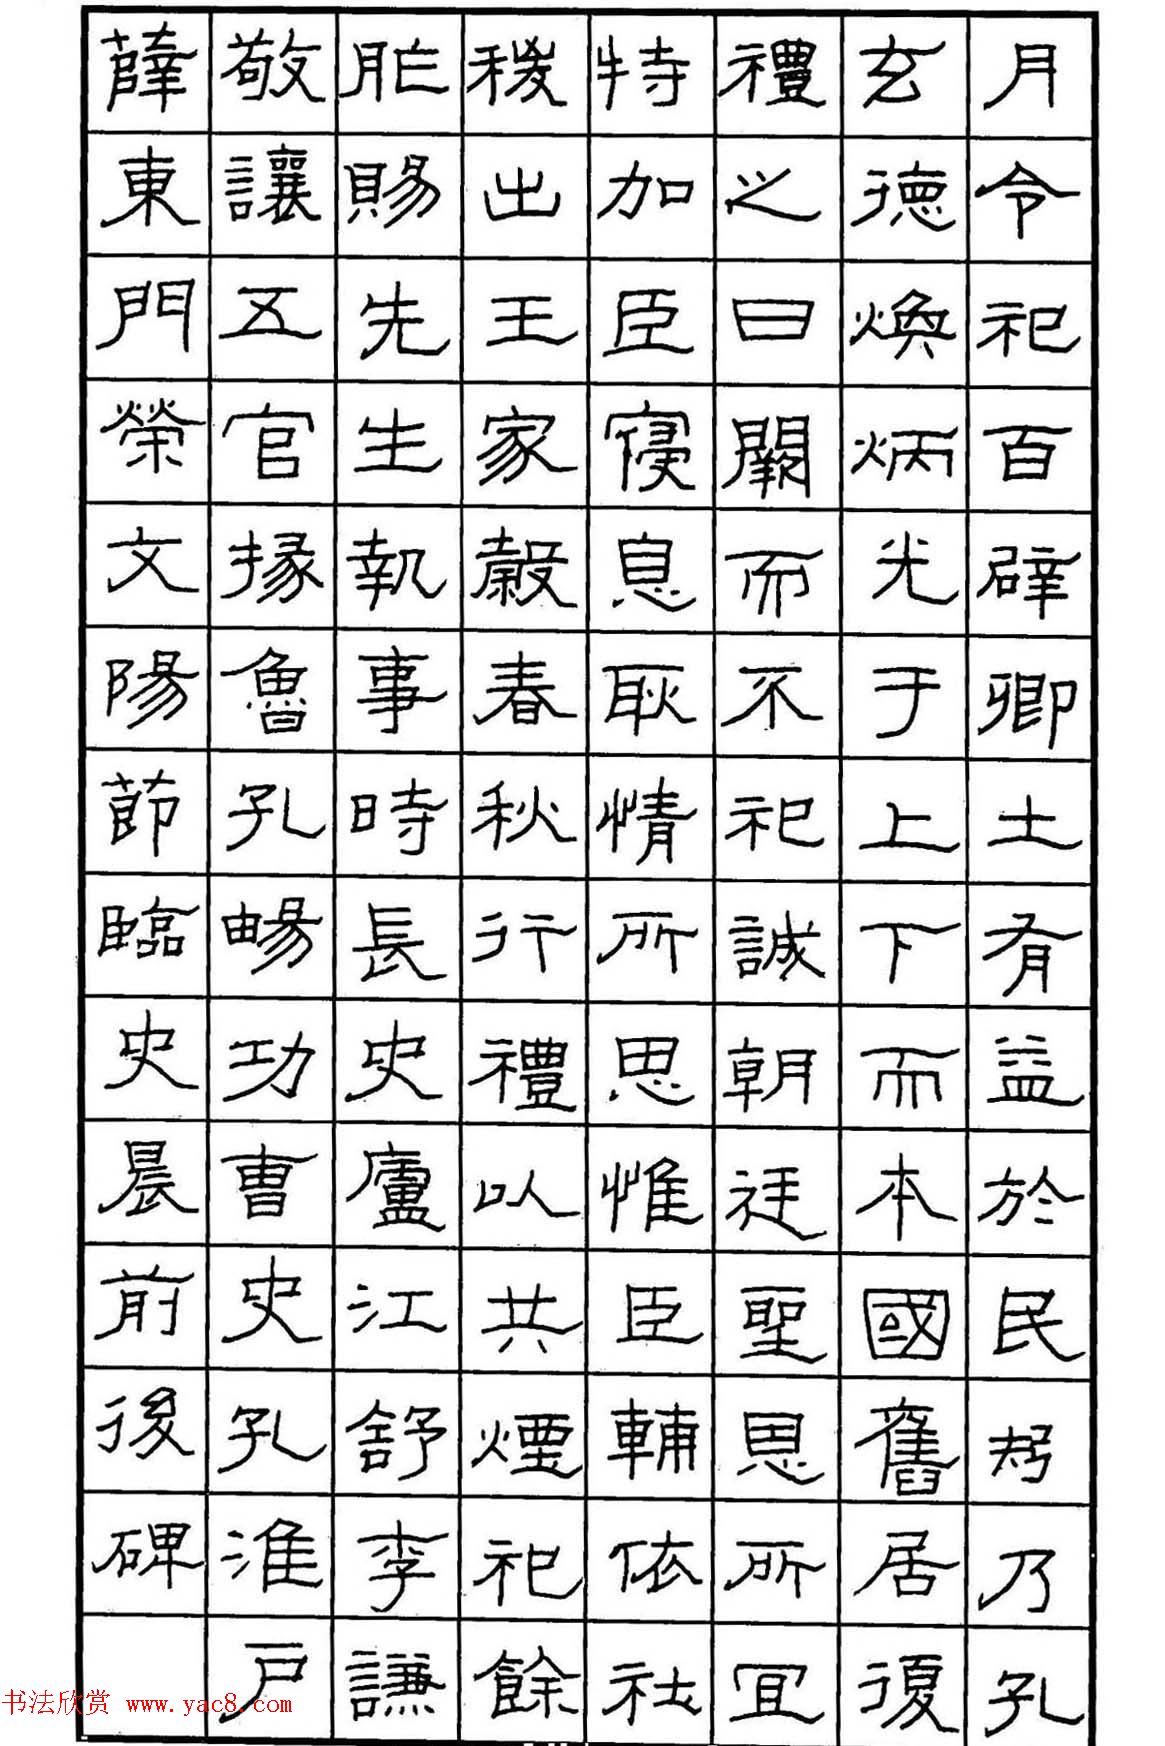 月令祀百辟卿士有益於民矜乃孔
玄德煥炳光于上下而本國舊居復
禮之日闕而不祀誠朝廷聖恩所宜
特加臣寑息耿情所思惟臣輔依社
稷出王家穀春秋行禮以共煙祀餘
胙賜先生執事時長史廬江舒李謙
敬讓五官掾魯孔暢功曹史孔淮戶
薛東門榮文陽節臨史晨前後碑
书法欣赏 www.yac8.com